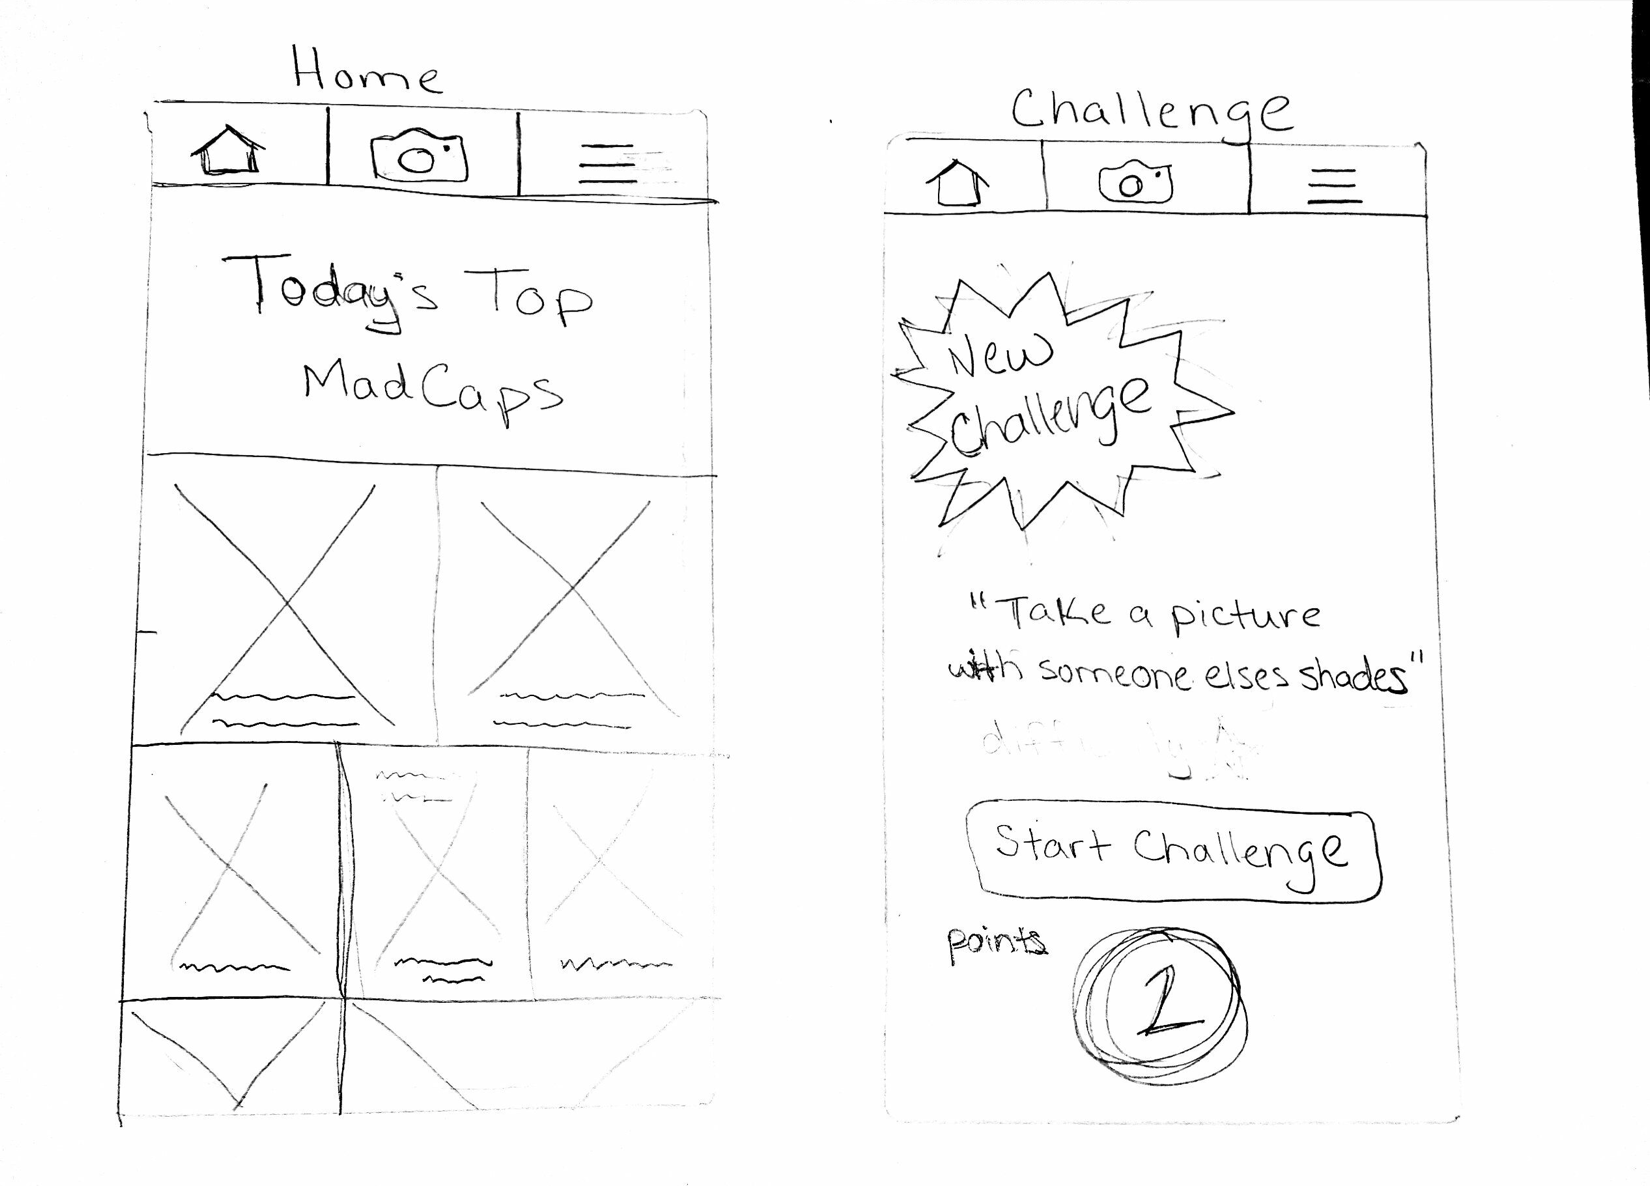 Home
Today's Top
MadCaps
Challenge
New
Challenge
"Take a picture
with someone elses shades"
Start Challenge
points